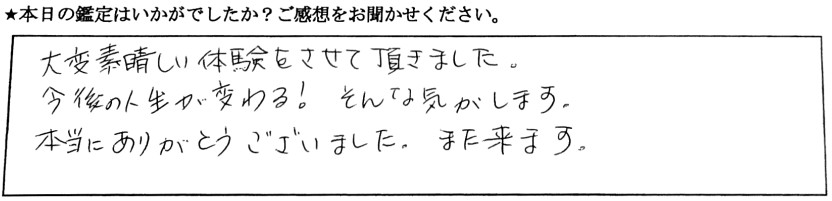 ★本日の鑑定はいかがでしたか？ご感想をお聞かせください。
大変素晴しい体験をさせて頂きました。
今後の人生が変わる! そんな気がします。
本当にありがとうございました。また来ます。